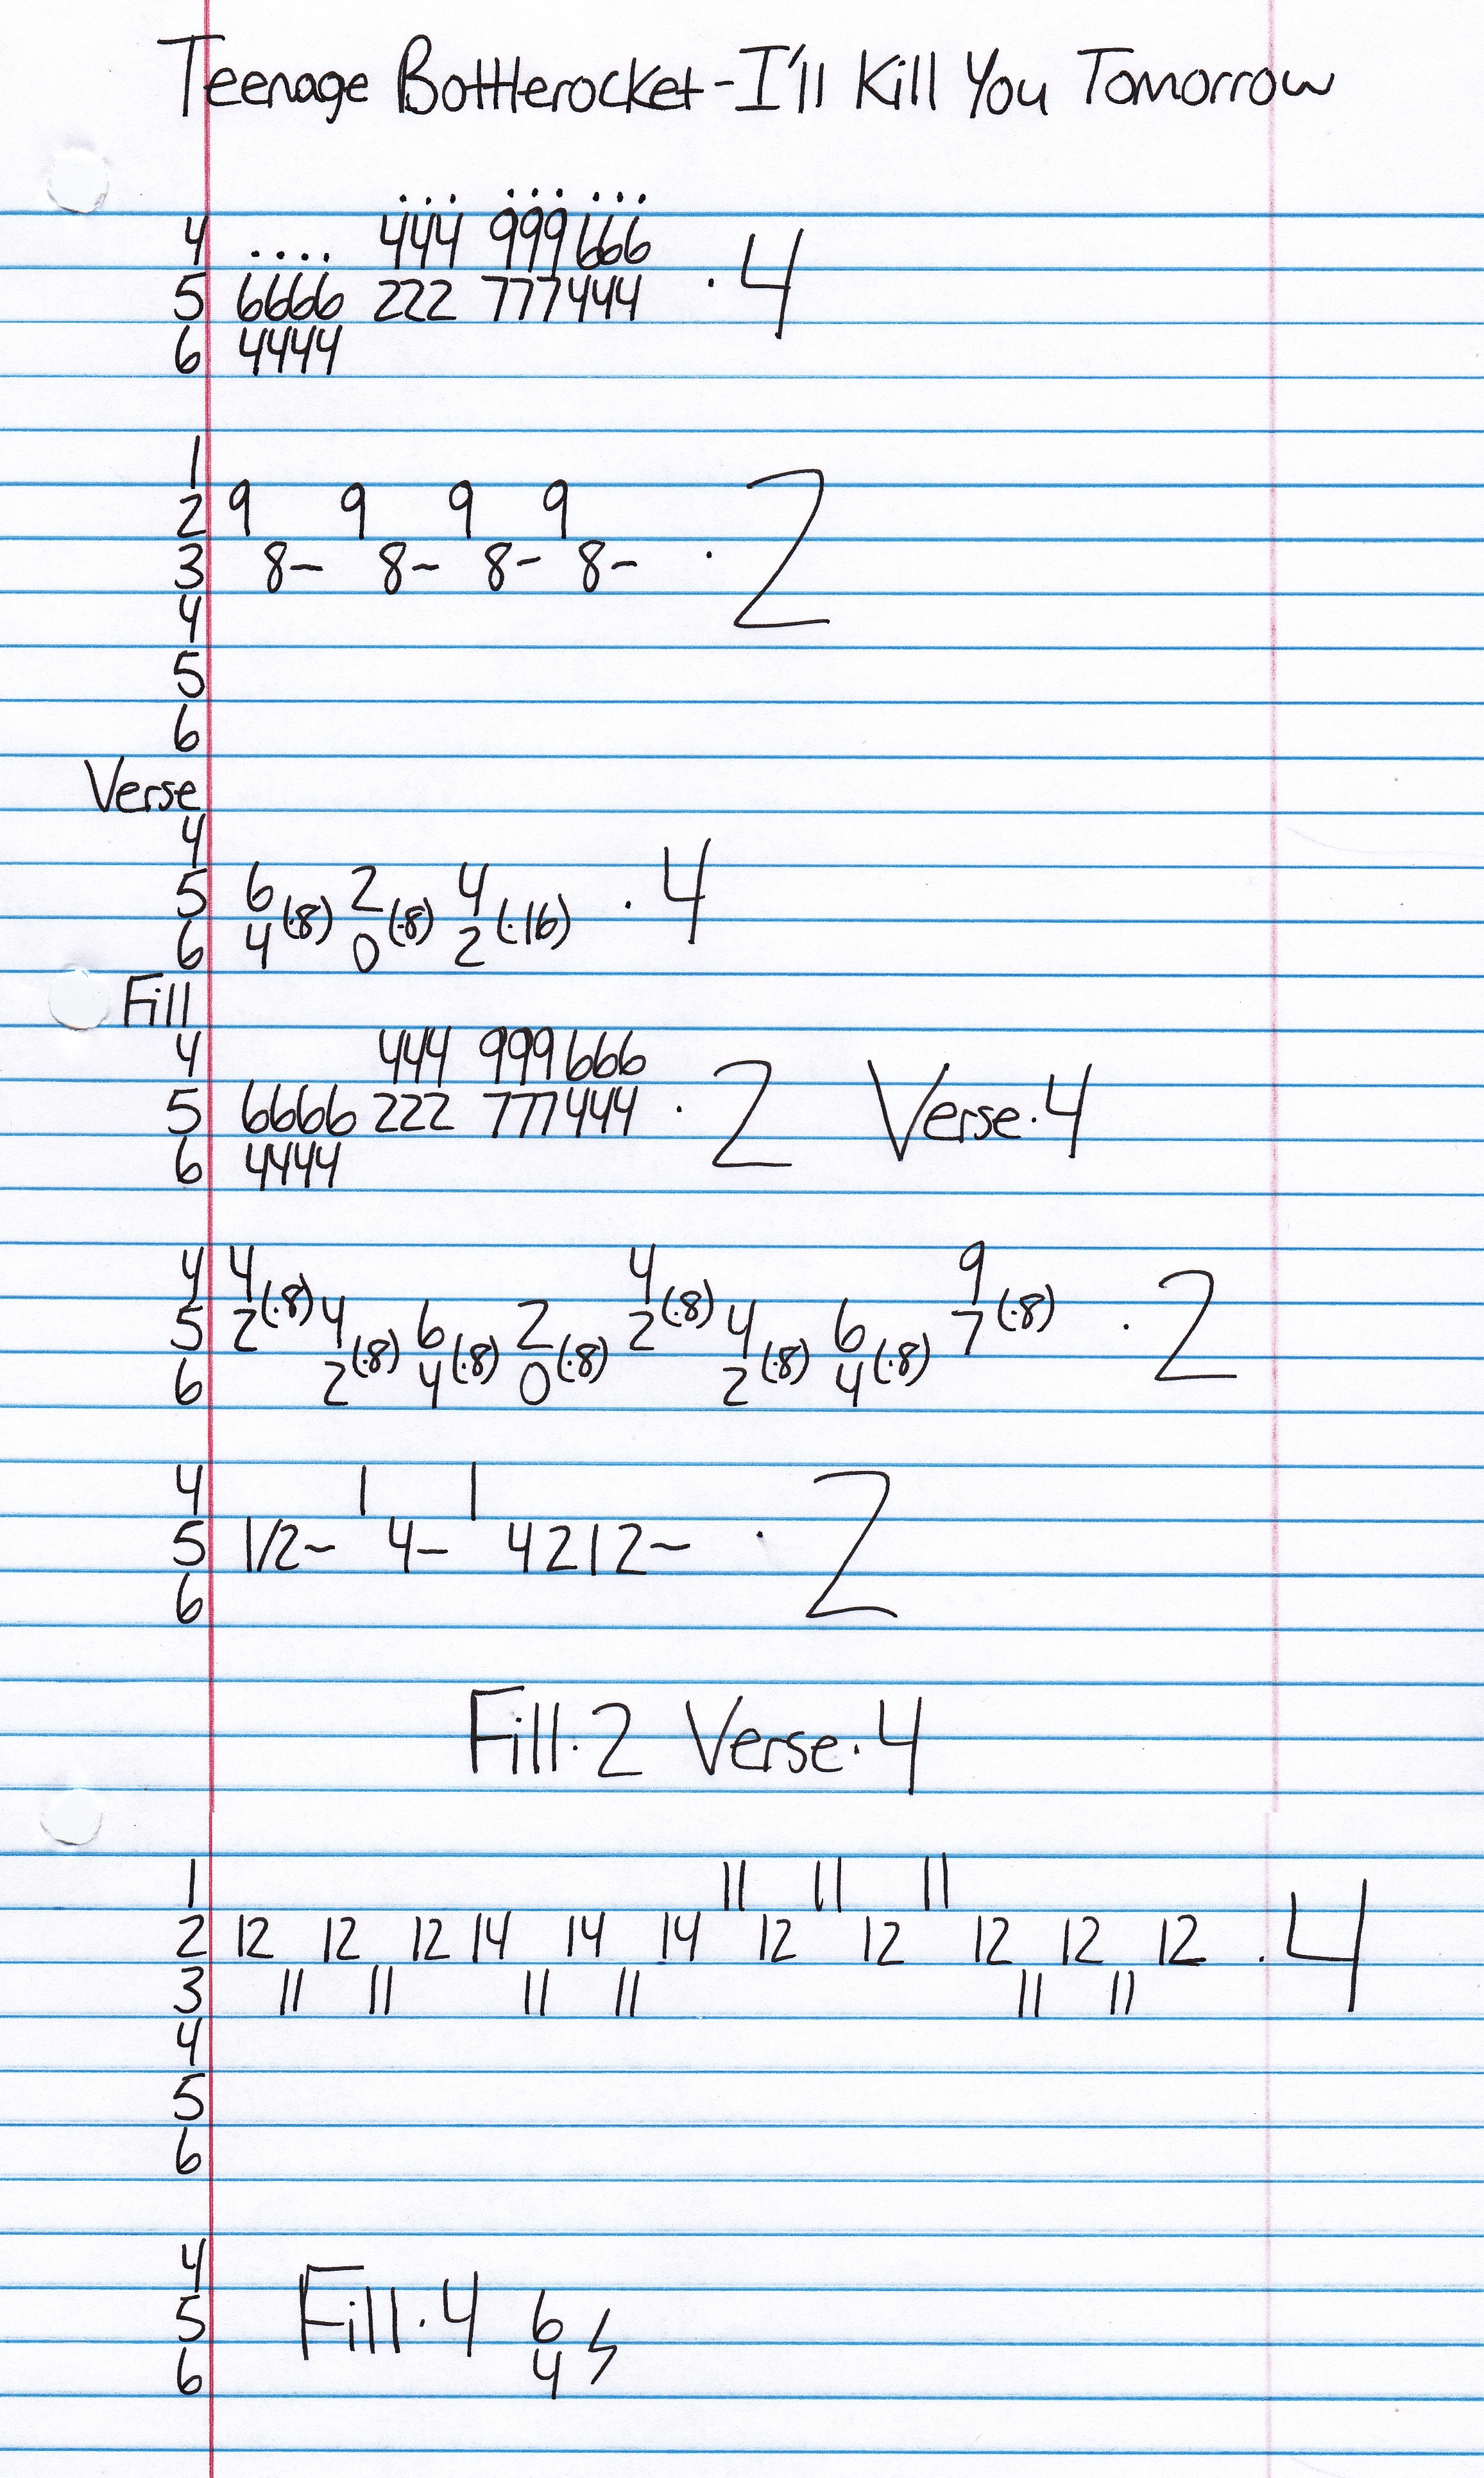 Teenage Bottlerocket-I'll Kill You Tomorrow
... ... ...
4 .... 444 999 666
5 6666 222 777 444 · 4
6 4444
1
2 9 9 9 9
3 8~ 8~ 8~ 8~ · 2
4
5
6
Verse
4
5 6 (·8) 2 (·8) 4 (·16) · 4
6 4 0 2
Fill
4 444 999 666
5 6666 222 777 444 · 2 Verse·4
6 4444
4 4 (·8) 4 (·8) 9 (·8)
5 2 4 (·8) 6 (·8) 2 (·8) 2 4 (·8) 6 (·8) 7 · 2
6 2 4 0 2 4
4 1 1
5 1/2~ 4- 4 2 1 2~ · 2
6
Fill·2 Verse·4
1 11 11 11
2 12 12 12 14 14 14 12 12 12 12 12 · 4
3 11 11 11 11 11 11
4
5
6
4
5 Fill·4 6
6 4